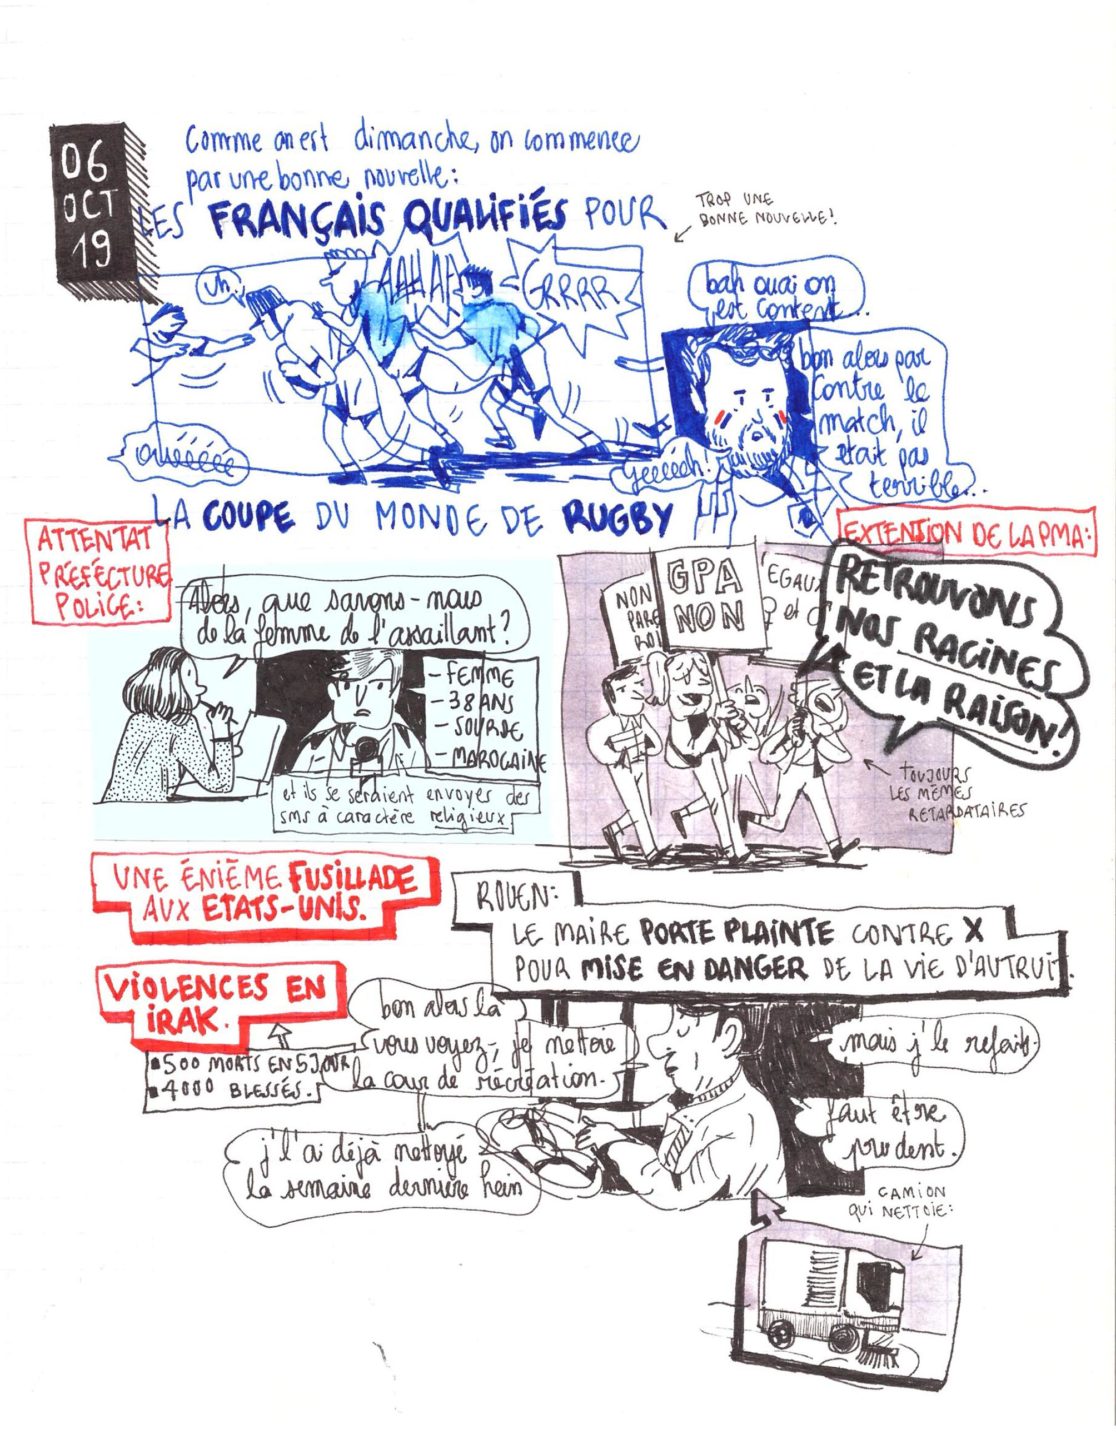 06
OCT
19
Comme on est dimanche, on commence
par une bonne nouvelle:
LES FRANÇAIS QUALIFIÉS POUR
TROP UNE
BONNE NOUVELLE!
uh
AAHAAH
GRRRR
bah ouai on
est content...
bon alors par
contre le
match, il
était pas
terrible...
ouééééé
yeeeeah.
LA COUPE DU MONDE DE RUGBY
ATTENTAT
PRÉFÉCTURE
POLICE:
Alors, que savons-nous
de la femme de l'assaillant?
- FEMME
- 38 ANS
- SOURDE
- MAROCAINE
et ils se seraient envoyés des
sms à caractère religieux
EXTENTION DE LA PMA:
NON
PARE
ROI
GPA
NON
EGAU
♀ et ♂
RETROUVONS
NOS RACINES
ET LA RAISON!
TOUJOURS
LES MÊMES
RETARDATAIRES
UNE ÉNIÈME FUSILLADE
AUX ETATS-UNIS.
VIOLENCES EN
IRAK.
500 MORTS EN 5 JOUR
4000 BLESSÉS.
ROUEN:
LE MAIRE PORTE PLAINTE CONTRE X
POUR MISE EN DANGER DE LA VIE D'AUTRUI.
bon alors là
vous voyez, je nettoie
la cour de récréation.
j'l'ai déjà nettoyé
la semaine dernière hein
mais j'le refais.
faut être
prudent.
CAMION
QUI NETTOIE: